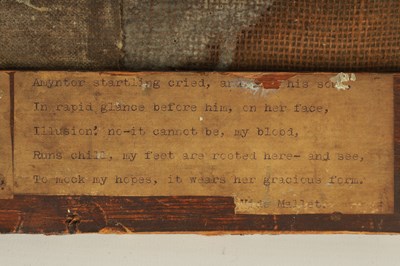 Amyntor startling cried, and his so
In rapid glance before him, on her face,
Illusion! no-it cannot be, my blood,
Runs chill, my feet are rooted here- and see,
To mock my hopes, it wears her gracious form.
Vide Mallet.